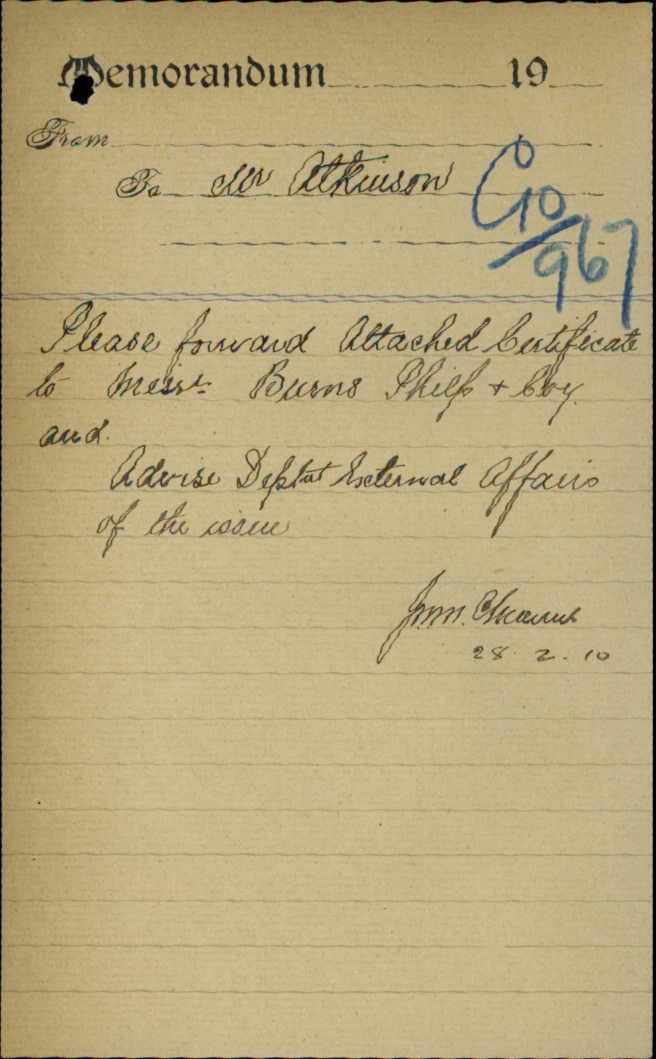 Memorandum 19
From
To Mr Atkinson
C10/967
Please forward Attached Certificate
to Messrs Burns Philp + Coy.
and
Advise Dept External Affairs
of the issue
28. 2. 10